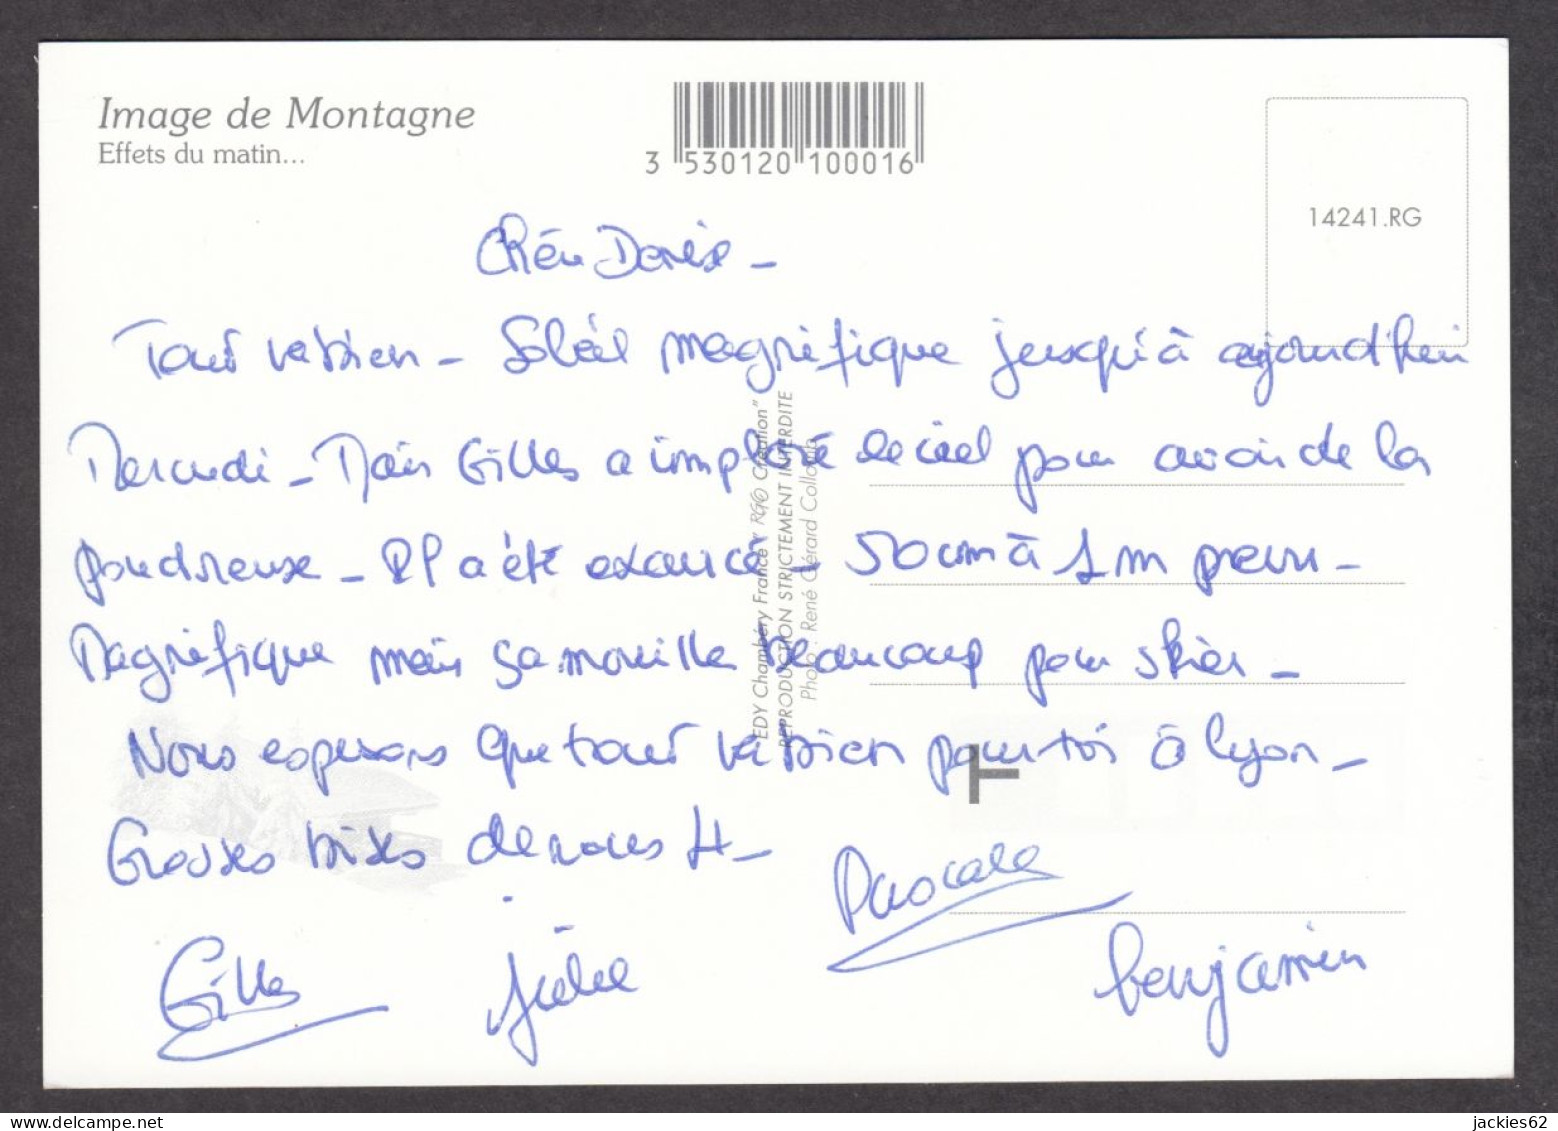 Image de Montagne
Effets du matin...
3 530120 100016
14241.RG
Tout va bien - Soleil magnifique jusqu'à aujourd'hui
Mercredi - Mais Gilles a imploré le ciel pour avoir de la
poudreuse - Il a été exaucé - 50 cm à 1 m prévu -
Magnifique mais ça mouille beaucoup pour skier -
Nous espérons que tout va bien pour toi à Lyon -
Grosses bises de nous 4 -
Pascale
Gilles
Julie
benjamin
EDY Chambéry France " RG© Création"
REPRODUCTION STRICTEMENT INTERDITE
Photo : René Gérard Collomb
jackies62